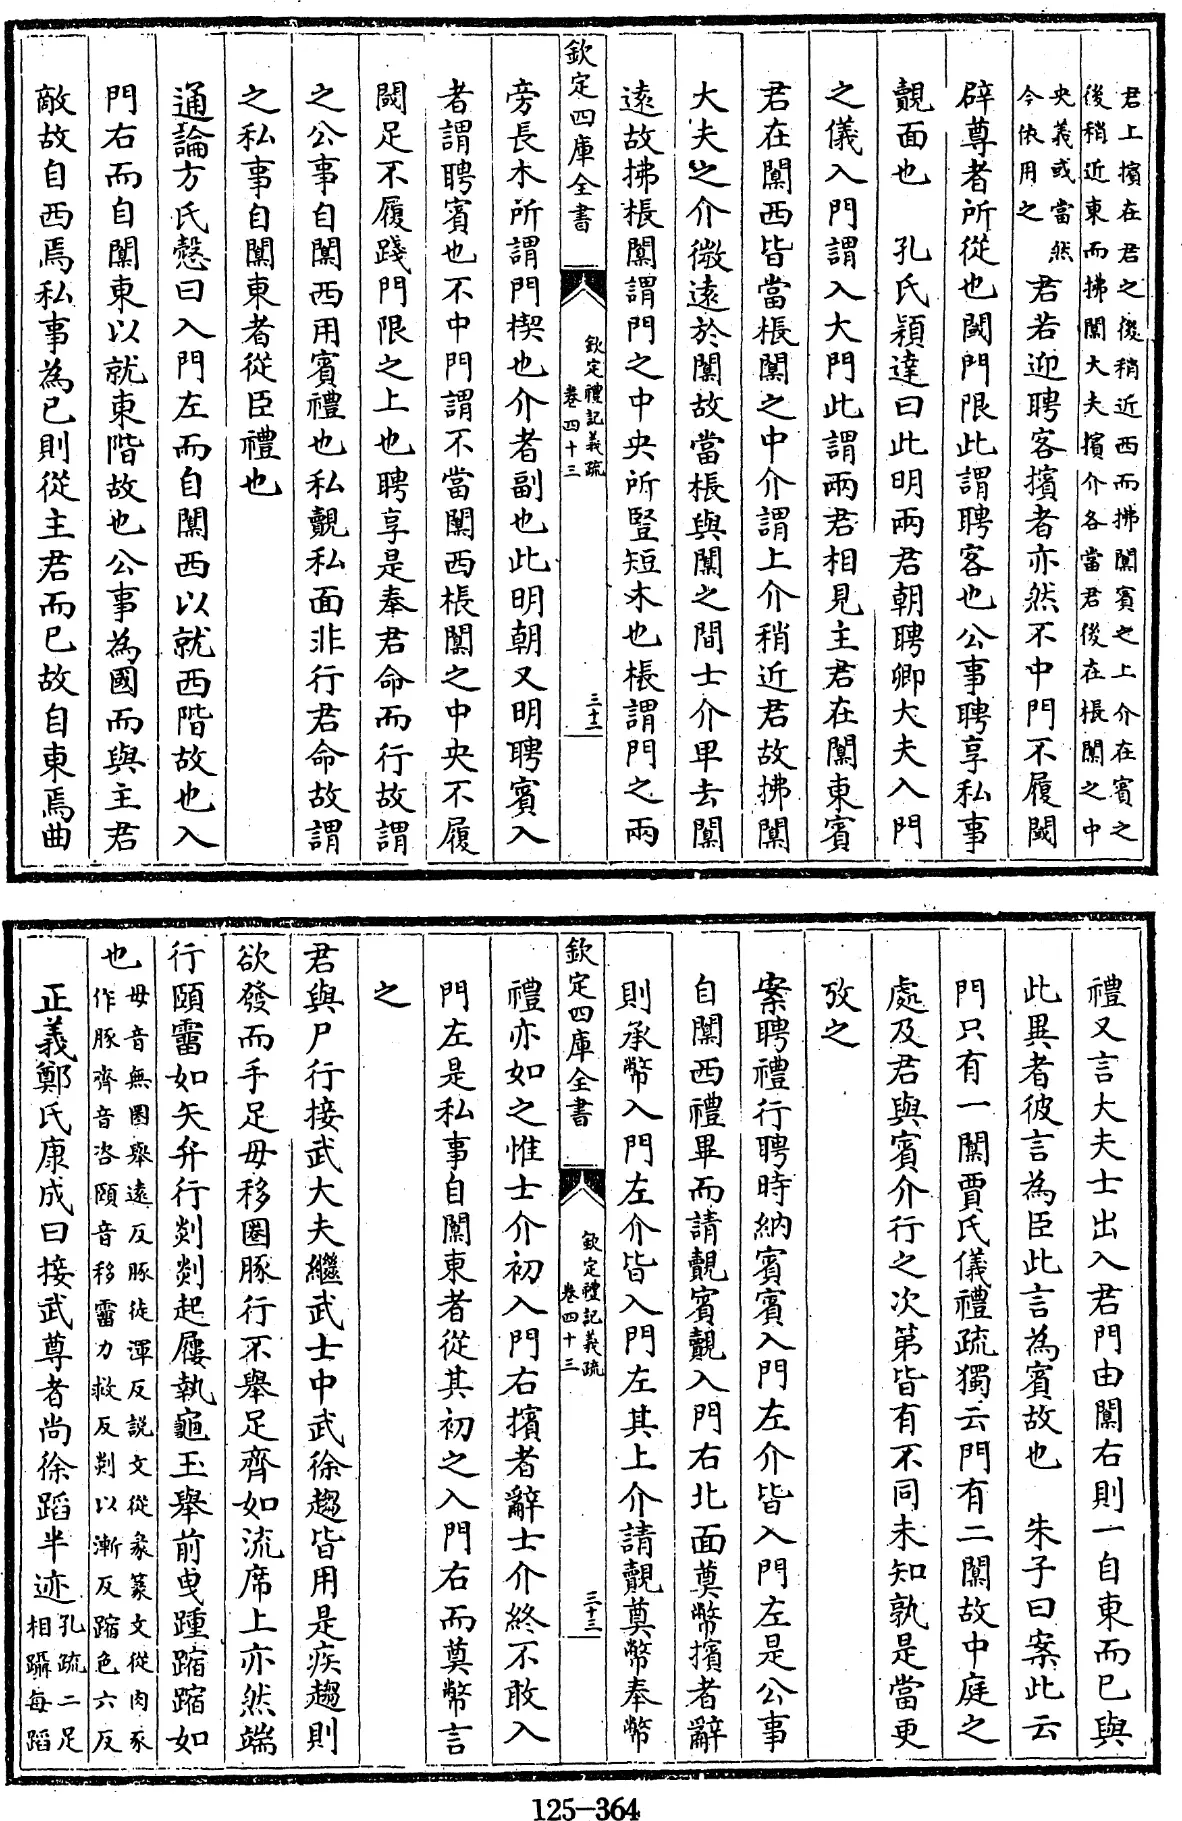 君上擯在君之後稍近西而拂闑賓之上介在賓之
後稍近東而拂闑大夫擯介各當君後在棖闑之中
央義或當然
今依用之
君若迎聘客擯者亦然不中門不履閾
辟尊者所從也閾門限此謂聘客也公事聘享私事
覿面也　孔氏穎達曰此明兩君朝聘卿大夫入門
之儀入門謂入大門此謂兩君相見主君在闑東賓
君在闑西皆當棖闑之中介謂上介稍近君故拂闑
大夫之介微遠於闑故當棖與闑之間士介卑去闑
遠故拂棖闑謂門之中央所豎短木也棖謂門之兩
欽定四庫全書
欽定禮記義疏
卷四十三
三十二
旁長木所謂門楔也介者副也此明朝又明聘賓入
者謂聘賓也不中門謂不當闑西棖闑之中央不履
閾足不履踐門限之上也聘享是奉君命而行故謂
之公事自闑西用賓禮也私覿私面非行君命故謂
之私事自闑東者從臣禮也
通論方氏慤曰入門左而自闑西以就西階故也入
門右而自闑東以就東階故也公事為國而與主君
敵故自西焉私事為已則從主君而已故自東焉曲
禮又言大夫士出入君門由闑右則一自東而已與
此異者彼言為臣此言為賓故也　朱子曰案此云
門只有一闑賈氏儀禮疏獨云門有二闑故中庭之
處及君與賓介行之次第皆有不同未知孰是當更
攷之
案聘禮行聘時納賓賓入門左介皆入門左是公事
自闑西禮畢而請覿賓覿入門右北面奠幣擯者辭
則承幣入門左介皆入門左其上介請覿奠幣奉幣
欽定四庫全書
欽定禮記義疏
卷四十三
三十三
禮亦如之惟士介初入門右擯者辭士介終不敢入
門左是私事自闑東者從其初之入門右而奠幣言
之
君與尸行接武大夫繼武士中武徐趨皆用是疾趨則
欲發而手足毋移圈豚行不舉足齊如流席上亦然端
行頤霤如矢弁行剡剡起屨執龜玉舉前曳踵蹜蹜如
也
毋音無圈舉遠反豚徒渾反說文從彖篆文從肉豕
作豚齊音咨頤音移霤力救反剡以漸反蹜色六反
正義鄭氏康成曰接武尊者尚徐蹈半迹
孔疏二足
相躡每蹈
125-364